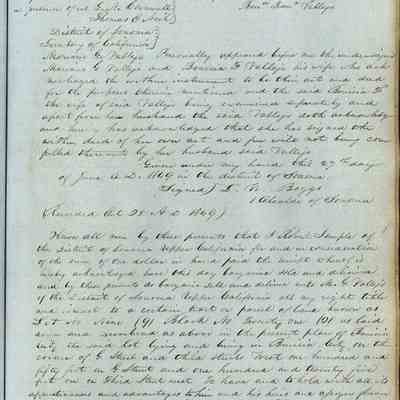 In presence of us
Thomas O. Neil
Benᵗᵒ Franᵒ Vallejo
District of Sonoma
Territory of California
Mariano G Vallejo Personally appeared before me the undersigned
Mariano G Vallejo and Benicia F Vallejo his wife who ack
nowledged the within instrument to be their act and deed
for the purposes therein mentioned and the said Benicia F
the wife of said Vallejo being examined separately and
apart from her husband the said Vallejo doth acknowledge
and has acknowledged that she has signed the
within deed of her own act and free will not being com
pelled thereunto by her husband said Vallejo
Given under my hand this 27th day
of June A.D. 1849 in the district of Sonoma.
Signed L. W. Boggs
Alcalde of Sonoma
Recorded Oct 20 A.D. 1849
Know all men by these presents that I Robt Semple of
the District of Sonoma Upper California for and in consideration
of the sum of one dollar in hand paid the receipt whereof is
hereby acknowledged have this day bargained sold and delivered
and by these presents do bargain sell and deliver unto M. G Vallejo
of the District of Sonoma Upper California all my right title
and interest to a certain tract or parcel of land known as
Lot No Nine (9) Block No twenty one (21) as laid
down and numbered as above in the present plan of Benicia
City the said lot lying and being in Benicia City on the
corner of G Street and third streets Front one hundred and
fifty feet on G Street and one hundred and twenty five
feet on third Street west. To have and to hold with all its
appurtenances and advantages to him and his heirs and assigns forever